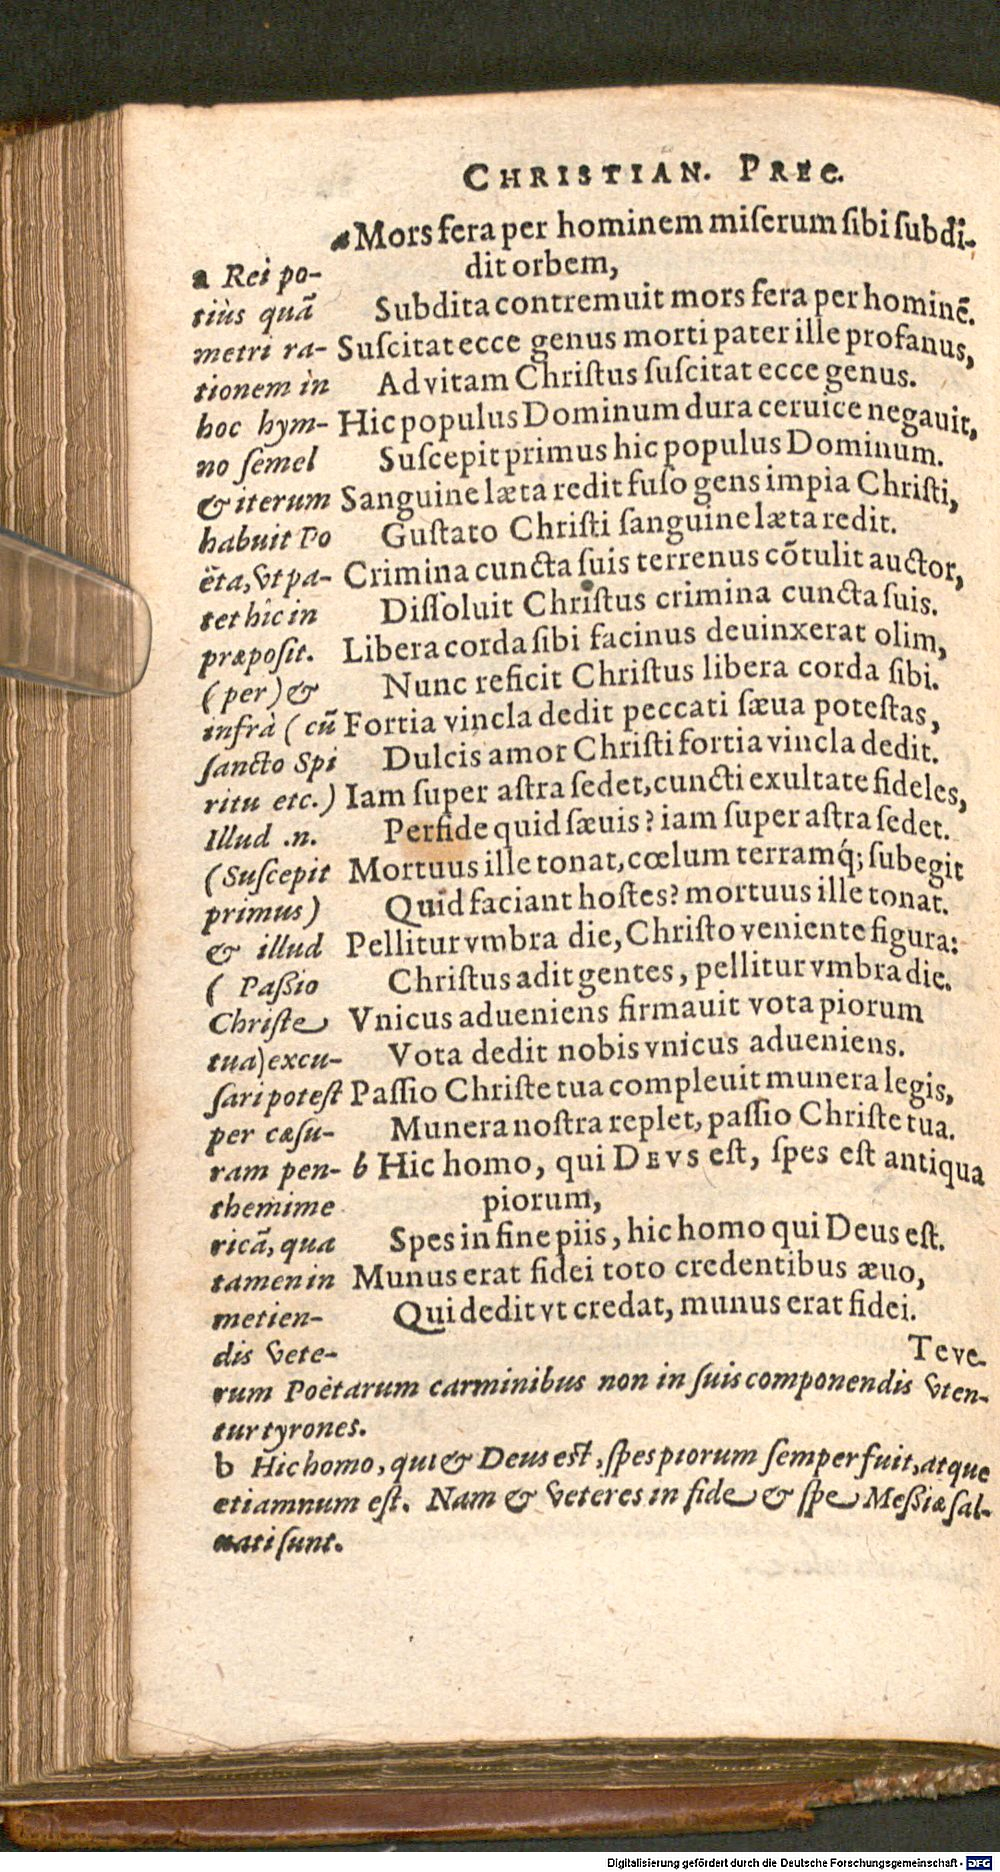 CHRISTIAN. PREC.
a Mors fera per hominem miserum sibi subdi-
dit orbem,
Subdita contremuit mors fera per hominẽ.
Suscitat ecce genus morti pater ille profanus,
Ad vitam Christus suscitat ecce genus.
Hic populus Dominum dura ceruice negauit,
Suscepit primus hic populus Dominum.
Sanguine læta redit fuso gens impia Christi,
Gustato Christi sanguine læta redit.
Crimina cuncta suis terrenus cõtulit auctor,
Dissoluit Christus crimina cuncta suis.
Libera corda sibi facinus deuinxerat olim,
Nunc reficit Christus libera corda sibi.
Fortia vincla dedit peccati sæua potestas,
Dulcis amor Christi fortia vincla dedit.
Iam super astra sedet, cuncti exultate fideles,
Perfide quid sæuis? iam super astra sedet.
Mortuus ille tonat, cœlum terramq́; subegit
Quid faciant hostes? mortuus ille tonat.
Pellitur vmbra die, Christo veniente figura:
Christus adit gentes, pellitur vmbra die.
Vnicus adueniens firmauit vota piorum
Vota dedit nobis vnicus adueniens.
Passio Christe tua compleuit munera legis,
Munera nostra replet, passio Christe tua.
b Hic homo, qui DEVS est, spes est antiqua
piorum,
Spes in fine piis, hic homo qui Deus est.
Munus erat fidei toto credentibus æuo,
Qui dedit vt credat, munus erat fidei.
Te ve-
a Rei po-
tiùs quã
metri ra-
tionem in
hoc hym-
no semel
& iterum
habuit Po
ëta, vt pa-
tet hîc in
præposit.
(per) &
infrà (cũ
sancto Spi
ritu etc.)
Illud .n.
(Suscepit
primus)
& illud
( Passio
Christe
tua) excu-
sari potest
per cæsu-
ram pen-
themime
ricã, qua
tamen in
metien-
dis vete-
rum Poëtarum carminibus non in suis componendis vten-
tur tyrones.
b Hic homo, qui & Deus est, spes piorum semper fuit, atque
etiamnum est. Nam & veteres in fide & spe Messiæ sal-
uati sunt.
Digitalisierung gefördert durch die Deutsche Forschungsgemeinschaft - DFG